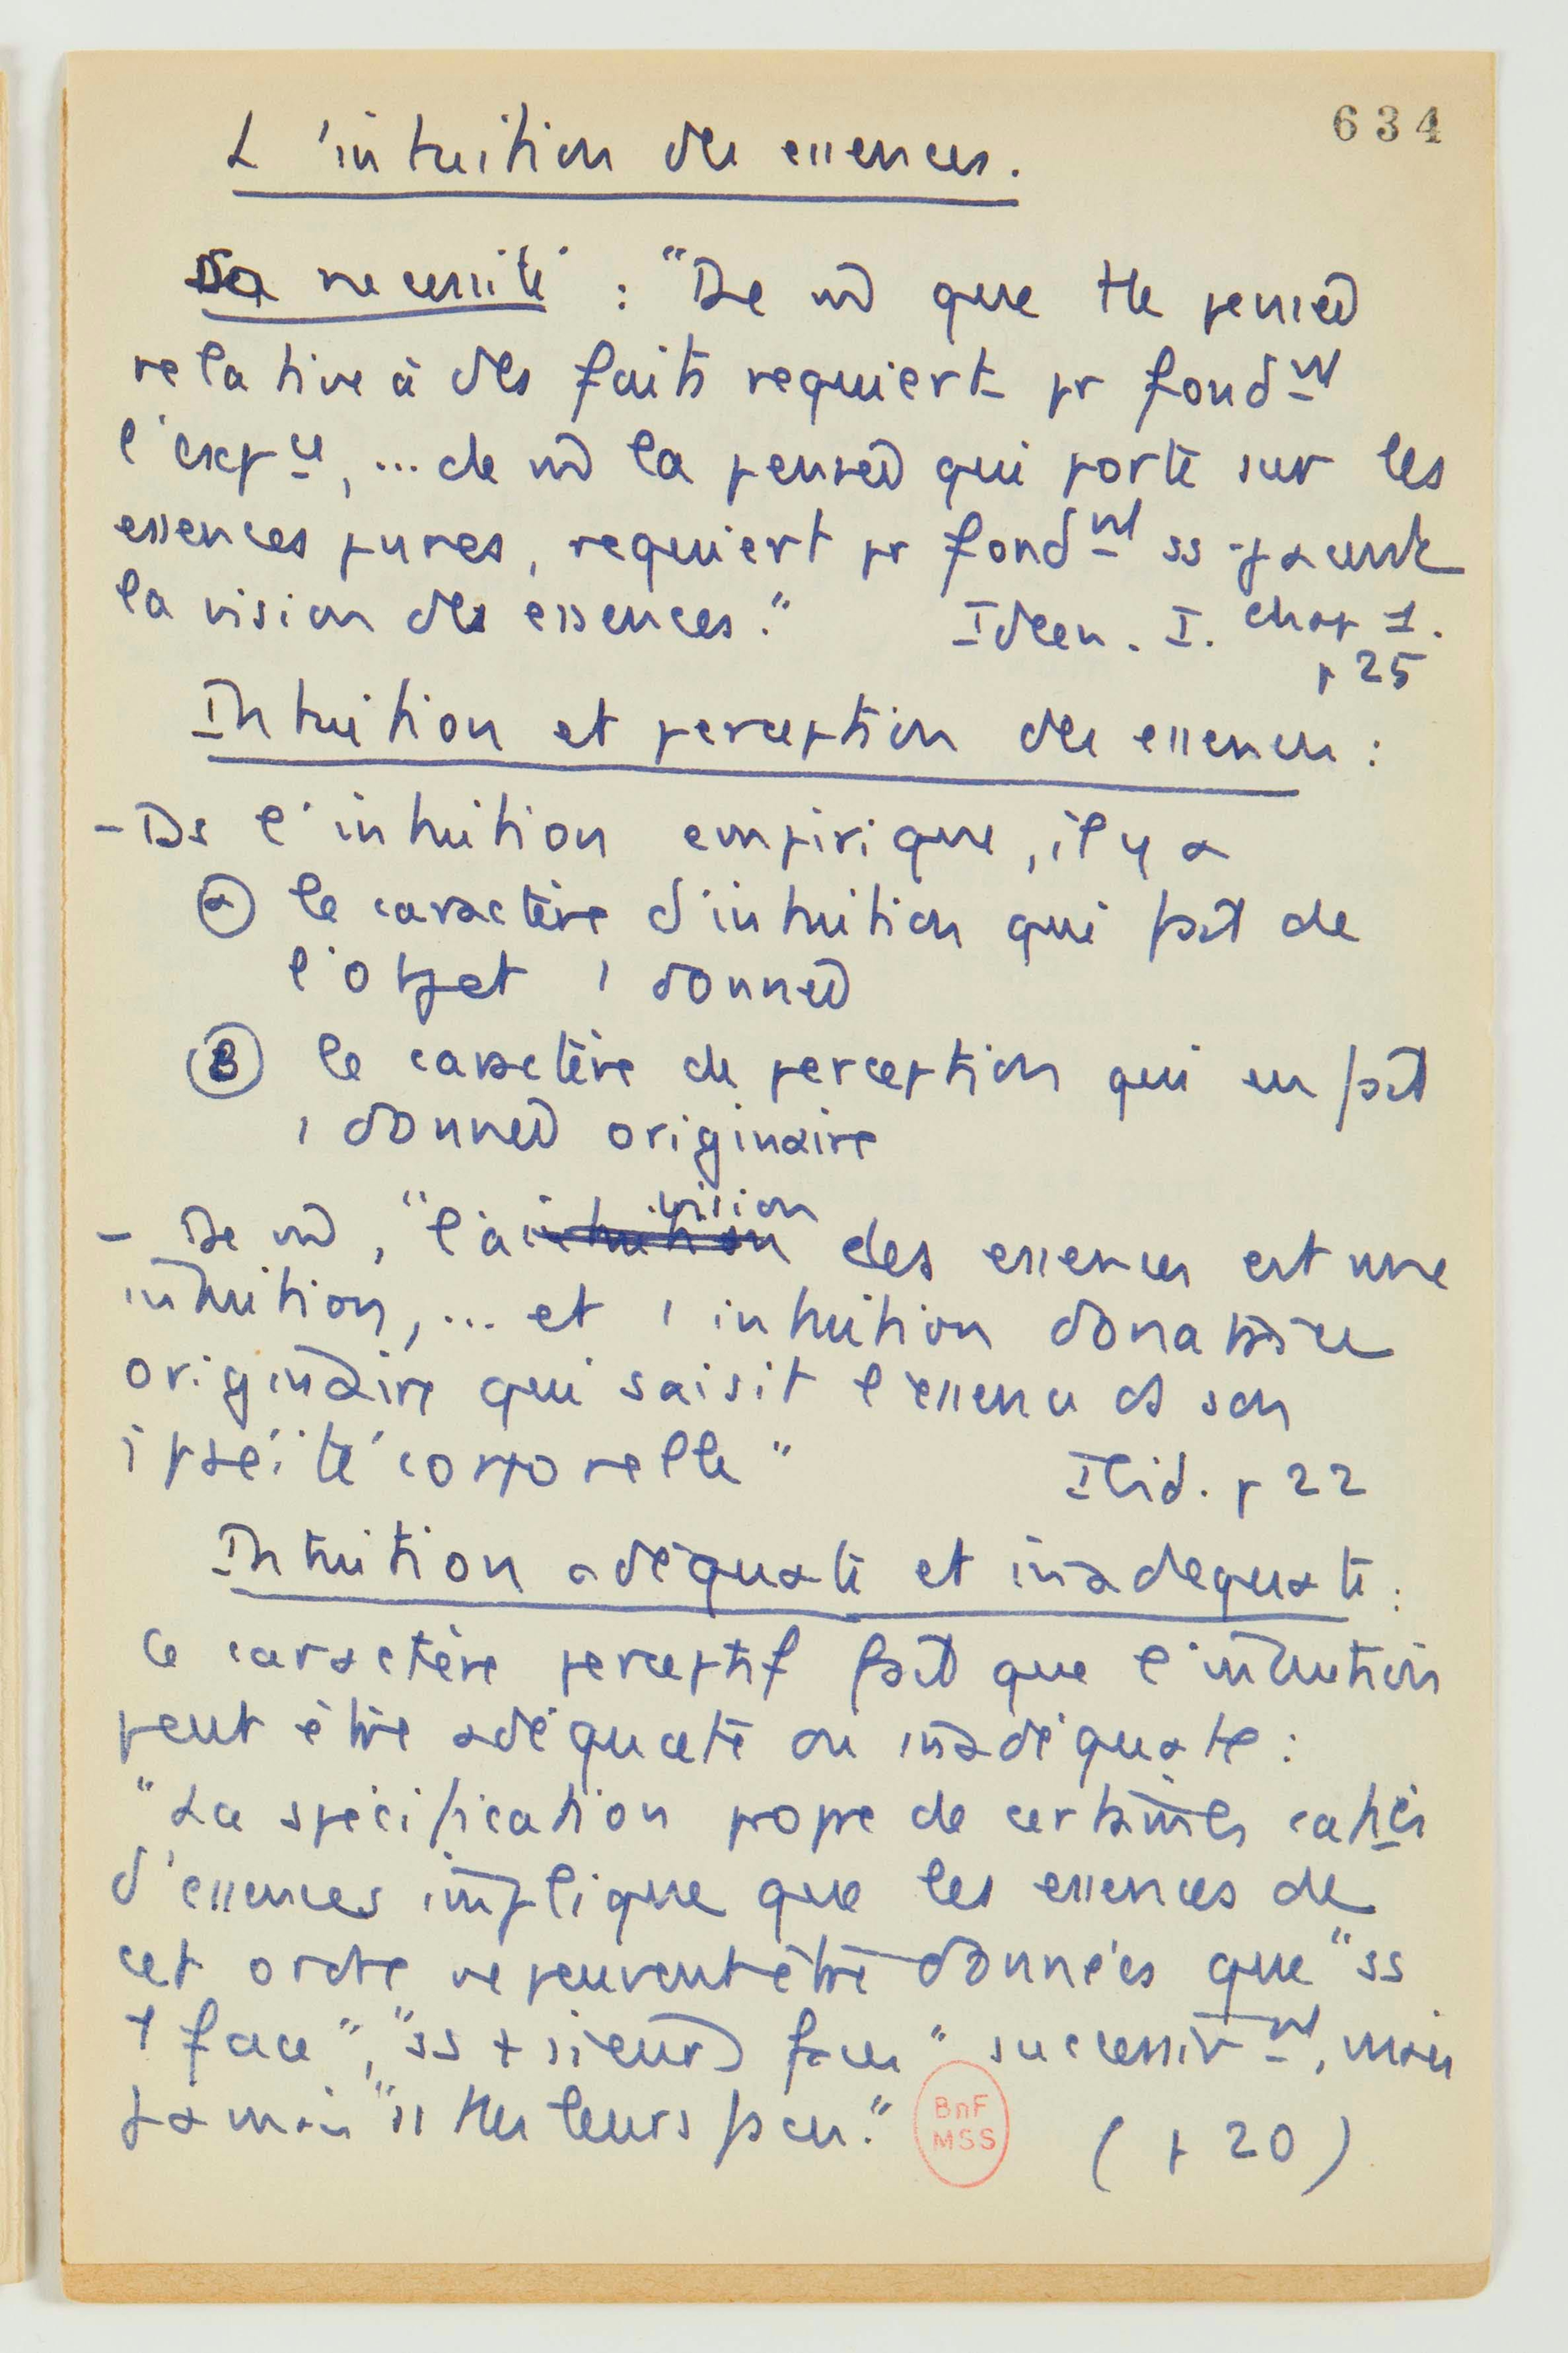 634
L'intuition des essences.
Sa necessité : "De m̂ que tte pensée
relative à des faits requiert pr fondnt
l'expce, ... de m̂ la pensée qui porte sur les
essences pures, requiert pr fondnt ss-jacente
la vision des essences." Ideen. I. chap 1.
p 25
Intuition et perception des essences :
- Ds l'intuition empirique, il y a
α le caractère d'intuition qui fait de
l'objet 1 donnée
β le caractère de perception qui en fait
1 donnée originaire
- De m̂, "la intuition vision des essences est une
intuition, ... et 1 intuition donatrice
originaire qui saisit l'essence ds son
ipséité corporelle" Ibid. p 22
Intuition adéquate et inadequate :
Ce caractère perceptif fait que l'intuition
peut être adéquate ou inadéquate :
"La spécification propre de certaines caties
d'essences implique que les essences de
cet ordre ne peuvent être données que "ss
1 face", "ss +sieurs faces" successivnt, mais
jamais "ss ttes leurs faces." (p 20)
BnF
MSS